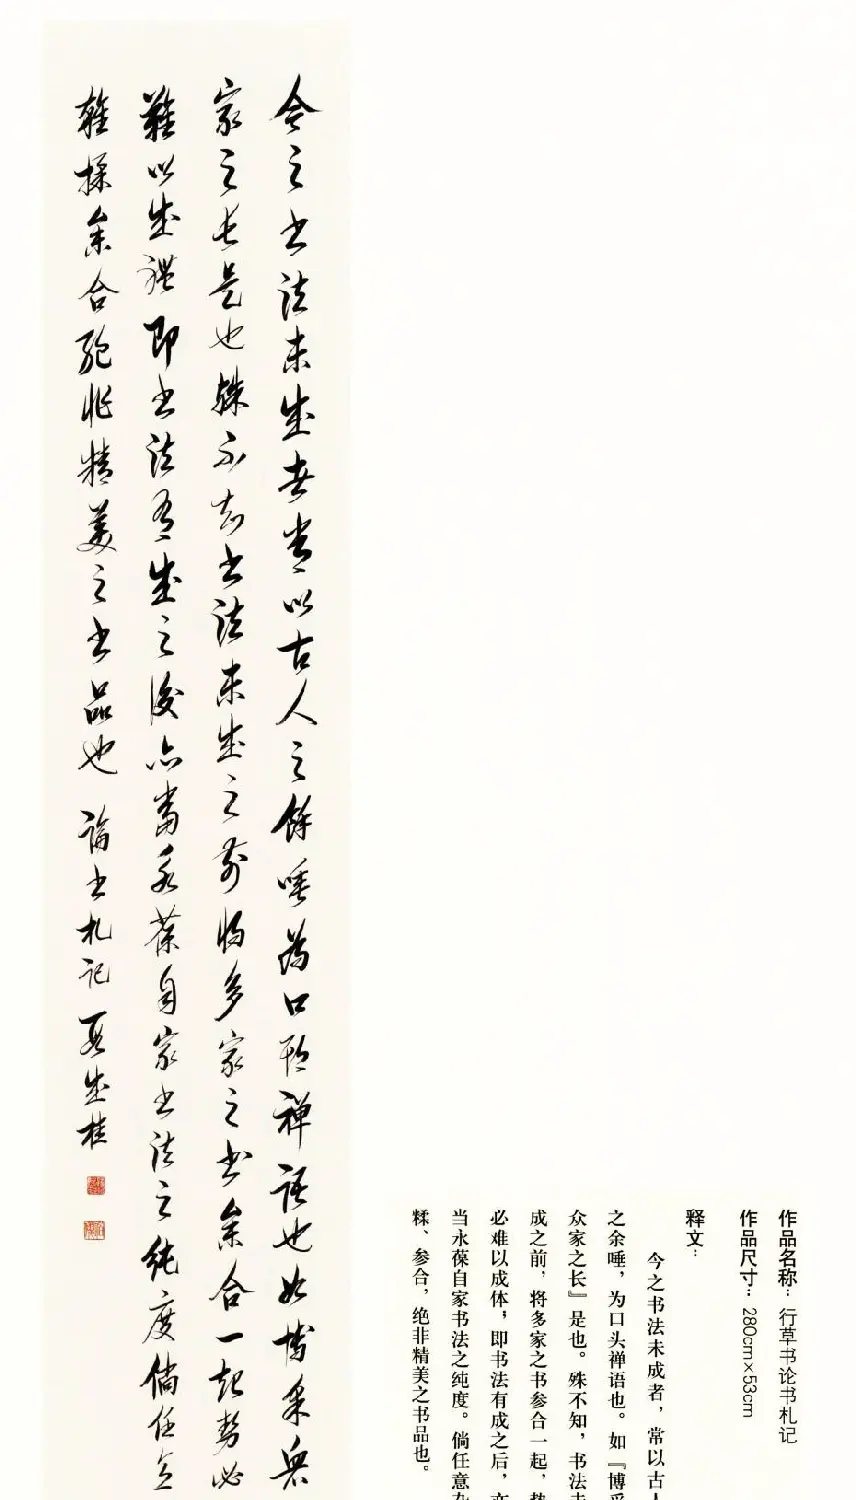 作品名称：行草书论书札记
作品尺寸：280cm×53cm
释文：
今之书法未成者，常以古人
之余唾，为口头禅语也。如『博采
众家之长』是也。殊不知，书法未
成之前，将多家之书参合一起，势
必难以成体；即书法有成之后，亦
当永葆自家书法之纯度。倘任意杂
糅、参合，绝非精美之书品也。
今之书法未成者常以古人之餘唾為口頭禅語也如博采眾
家之長是也殊不知书法未成之前將多家之书參合一起勢必
難以成體即书法有成之後亦當永葆自家书法之純度倘任意
雜揉參合絕非精美之书品也 論书札記 成桂